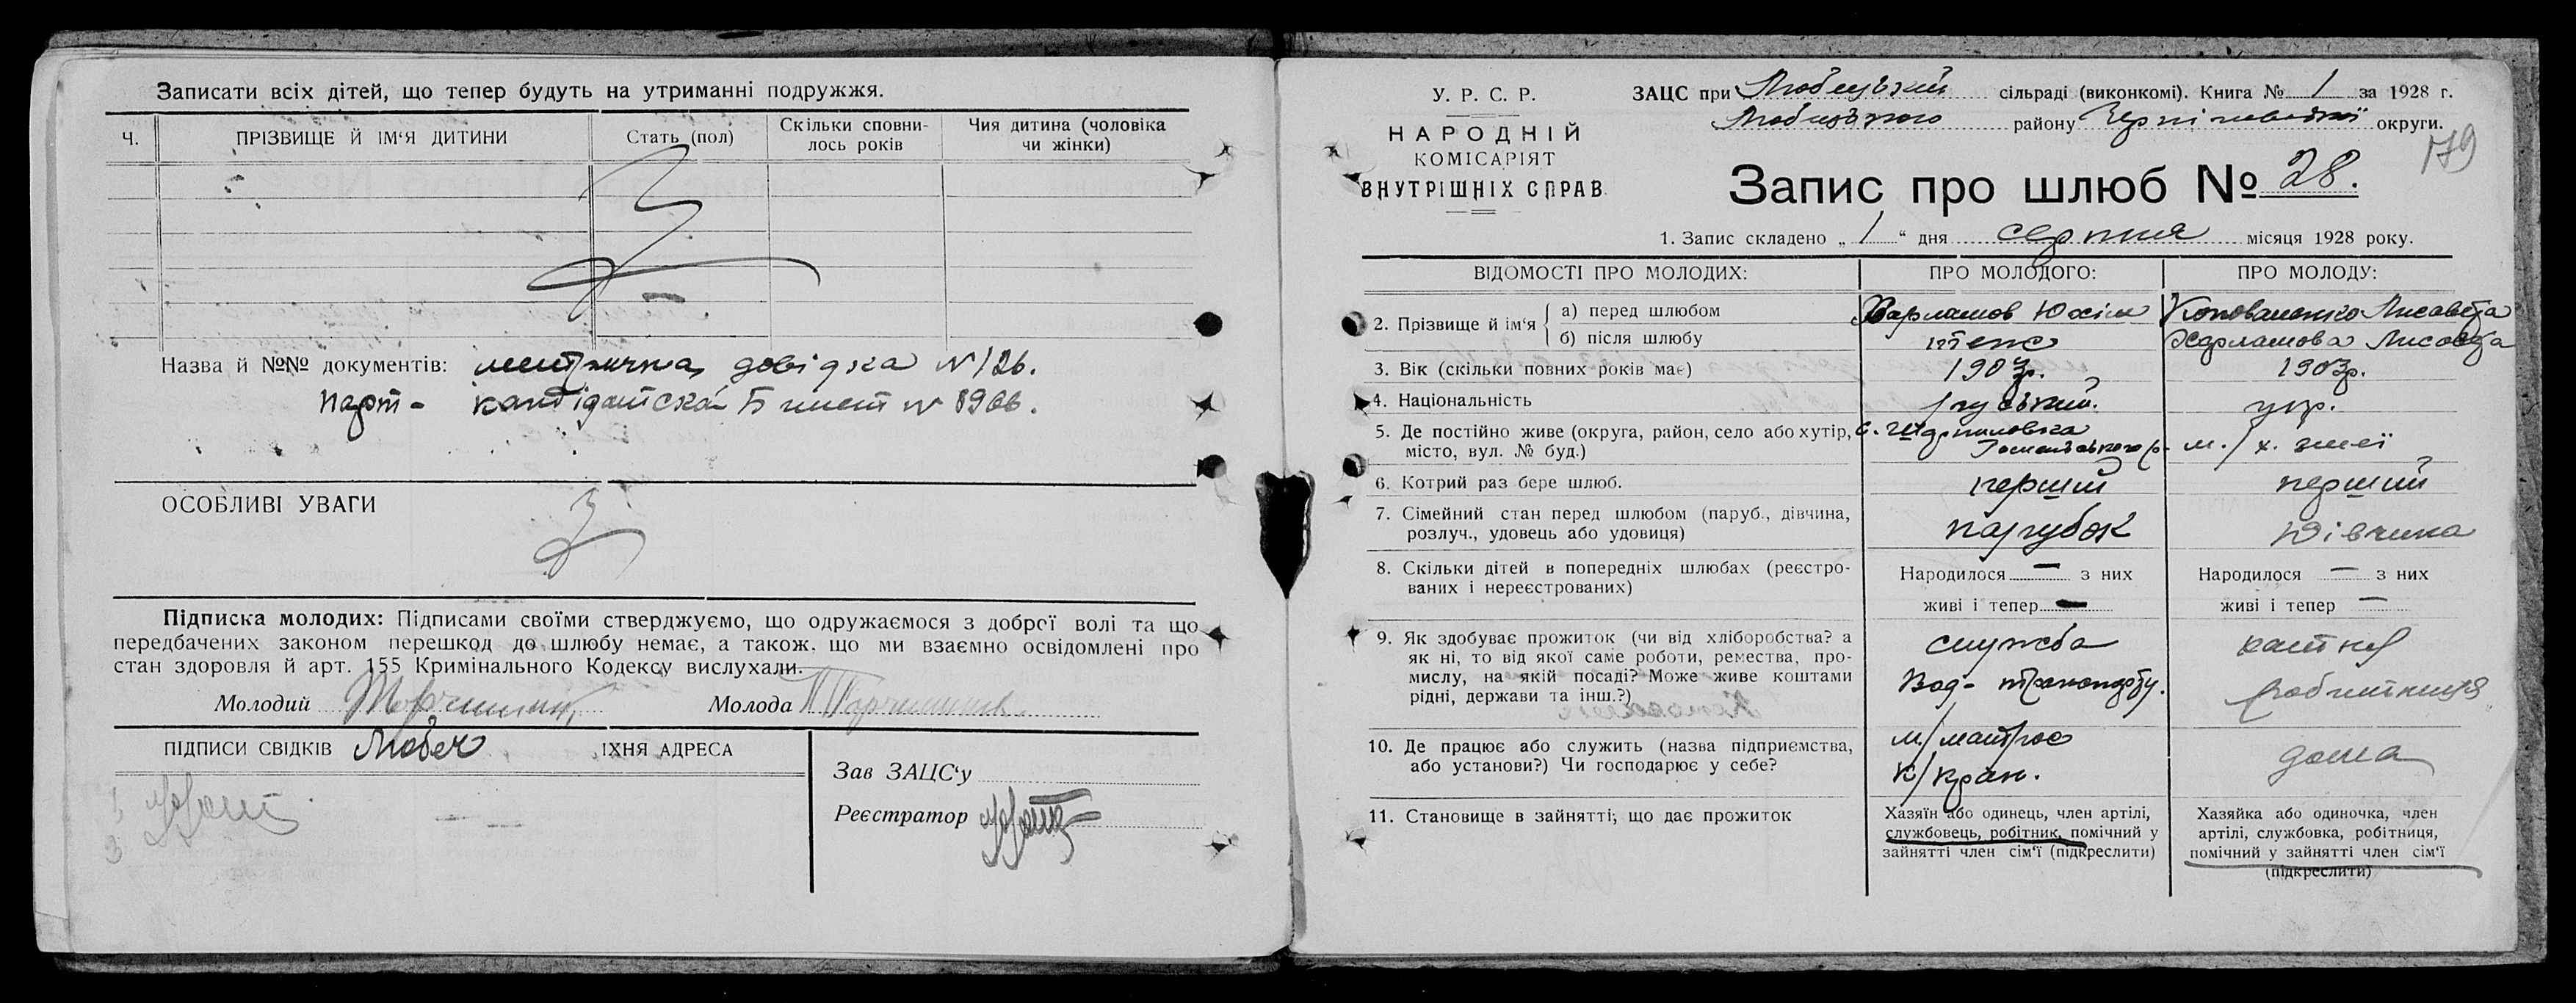 Записати всіх дітей, що тепер будуть на утриманні подружжя.
Ч.
ПРІЗВИЩЕ Й ІМ'Я ДИТИНИ
Стать (пол)
Скільки сповни-
лось років
Чия дитина (чоловіка
чи жінки)
Назва й №№ документів: метрична довідка N 126.
Парт - кандідатска Білет N 8966.
ОСОБЛИВІ УВАГИ
Підписка молодих: Підписами своїми стверджуємо, що одружаємося з доброї волі та що
передбачених законом перешкод до шлюбу немає, а також, що ми взаємно освідомлені про
стан здоровля й арт. 155 Кримінального Кодексу вислухали.
Молодий
Молода
ПІДПИСИ СВІДКІВ Любеч ЇХНЯ АДРЕСА
Зав ЗАЦС'у
Реєстратор
У. Р. С. Р.
НАРОДНІЙ
КОМІСАРІЯТ
ВНУТРІШНІХ СПРАВ
ЗАЦС при Любецький сільраді (виконкомі). Книга № 1 за 1928 г.
Любецького району Чернігівської округи.
179
Запис про шлюб № 28.
1. Запис складено „ 1 “ дня серпня місяця 1928 року.
ВІДОМОСТІ ПРО МОЛОДИХ:
ПРО МОЛОДОГО:
ПРО МОЛОДУ:
2. Прізвище й ім'я
а) перед шлюбом
Харламов Юхім
Коноваленко Лисавета
б) після шлюбу
теж
Харламова Лисавета
3. Вік (скільки повних років має)
1903р.
1903р.
4. Національність
руський.
укр.
5. Де постійно живе (округа, район, село або хутір,
місто, вул. № буд.)
6. Котрий раз бере шлюб.
перший
перший
7. Сімейний стан перед шлюбом (паруб., дівчина,
розлуч., удовець або удовиця)
парубок
дівчина
8. Скільки дітей в попередніх шлюбах (реєстро-
ваних і нереєстрованих)
Народилося — з них
живі і тепер —
Народилося — з них
живі і тепер —
9. Як здобуває прожиток (чи від хліборобства? а
як ні, то від якої саме роботи, ремества, про-
мислу, на якій посаді? Може живе коштами
рідні, держави та інш.?)
служба
Вод- транспорту.
10. Де працює або служить (назва підприємства,
або установи?) Чи господарює у себе?
м/матрос
к/кран.
дома
11. Становище в зайнятті, що дає прожиток
Хазяїн або одинець, член артілі,
службовець, робітник, помічний у
зайнятті член сім'ї (підкреслити)
Хазяйка або одиночка, член
артілі, службовка, робітниця,
помічний у зайнятті член сім'ї
(підкреслити)